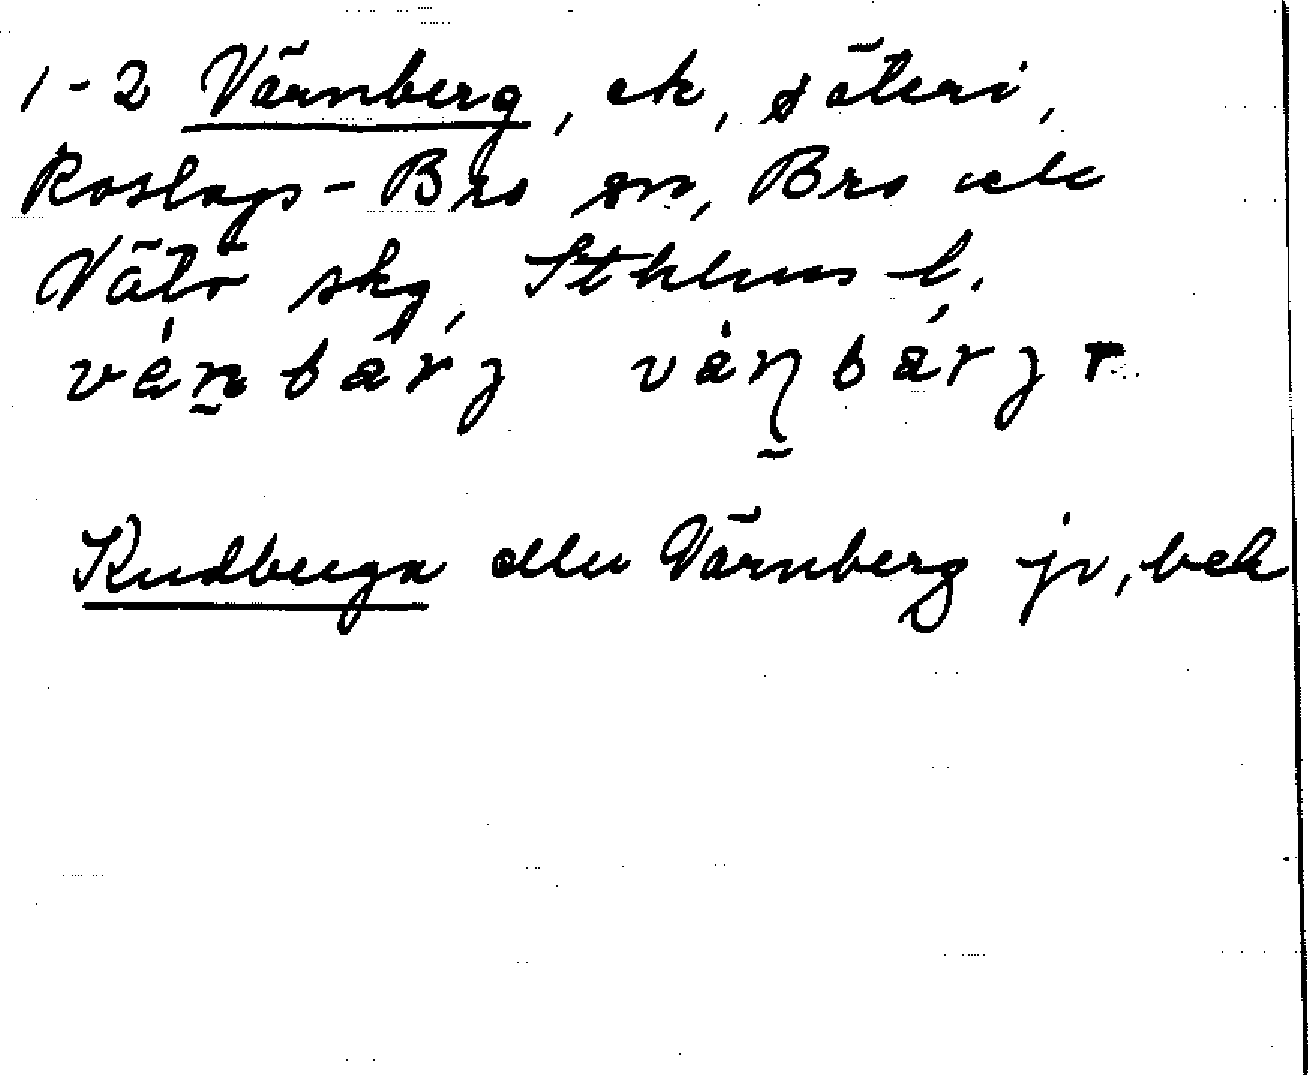 1-2 Värnberg, ek, säteri,
Roslags-Bro sn, Bro och
Vätö skg, Sthlms l.
vȧn̰bärj vȧn̰bärj r
Rudberga eller Värnberg jr, bek